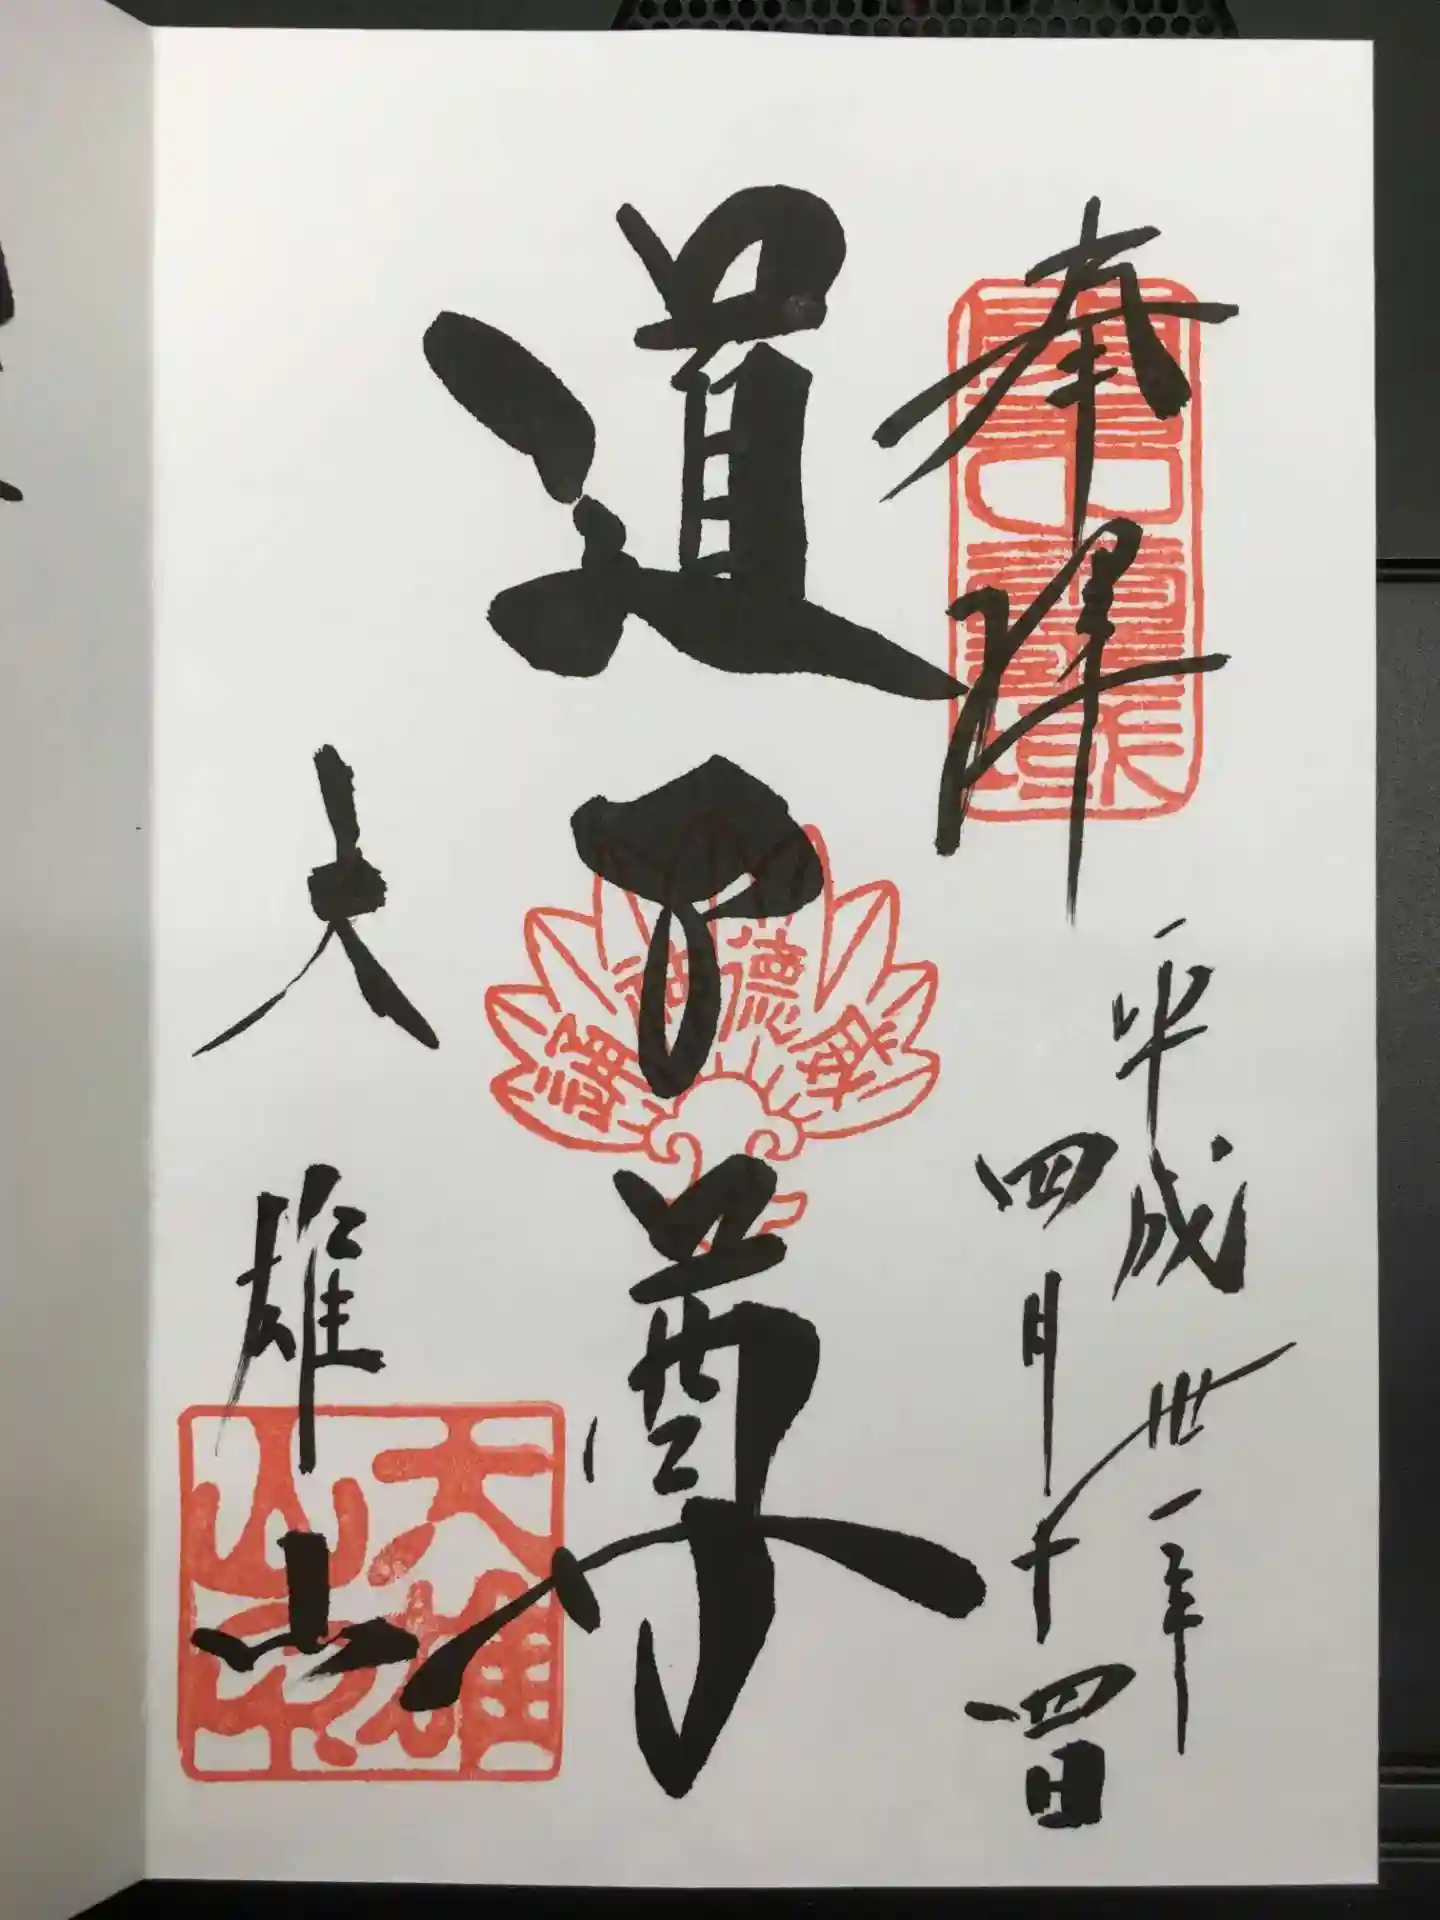 奉拝
平成卅一年
四月十四日
道了尊
威德
大雄山
大雄山印